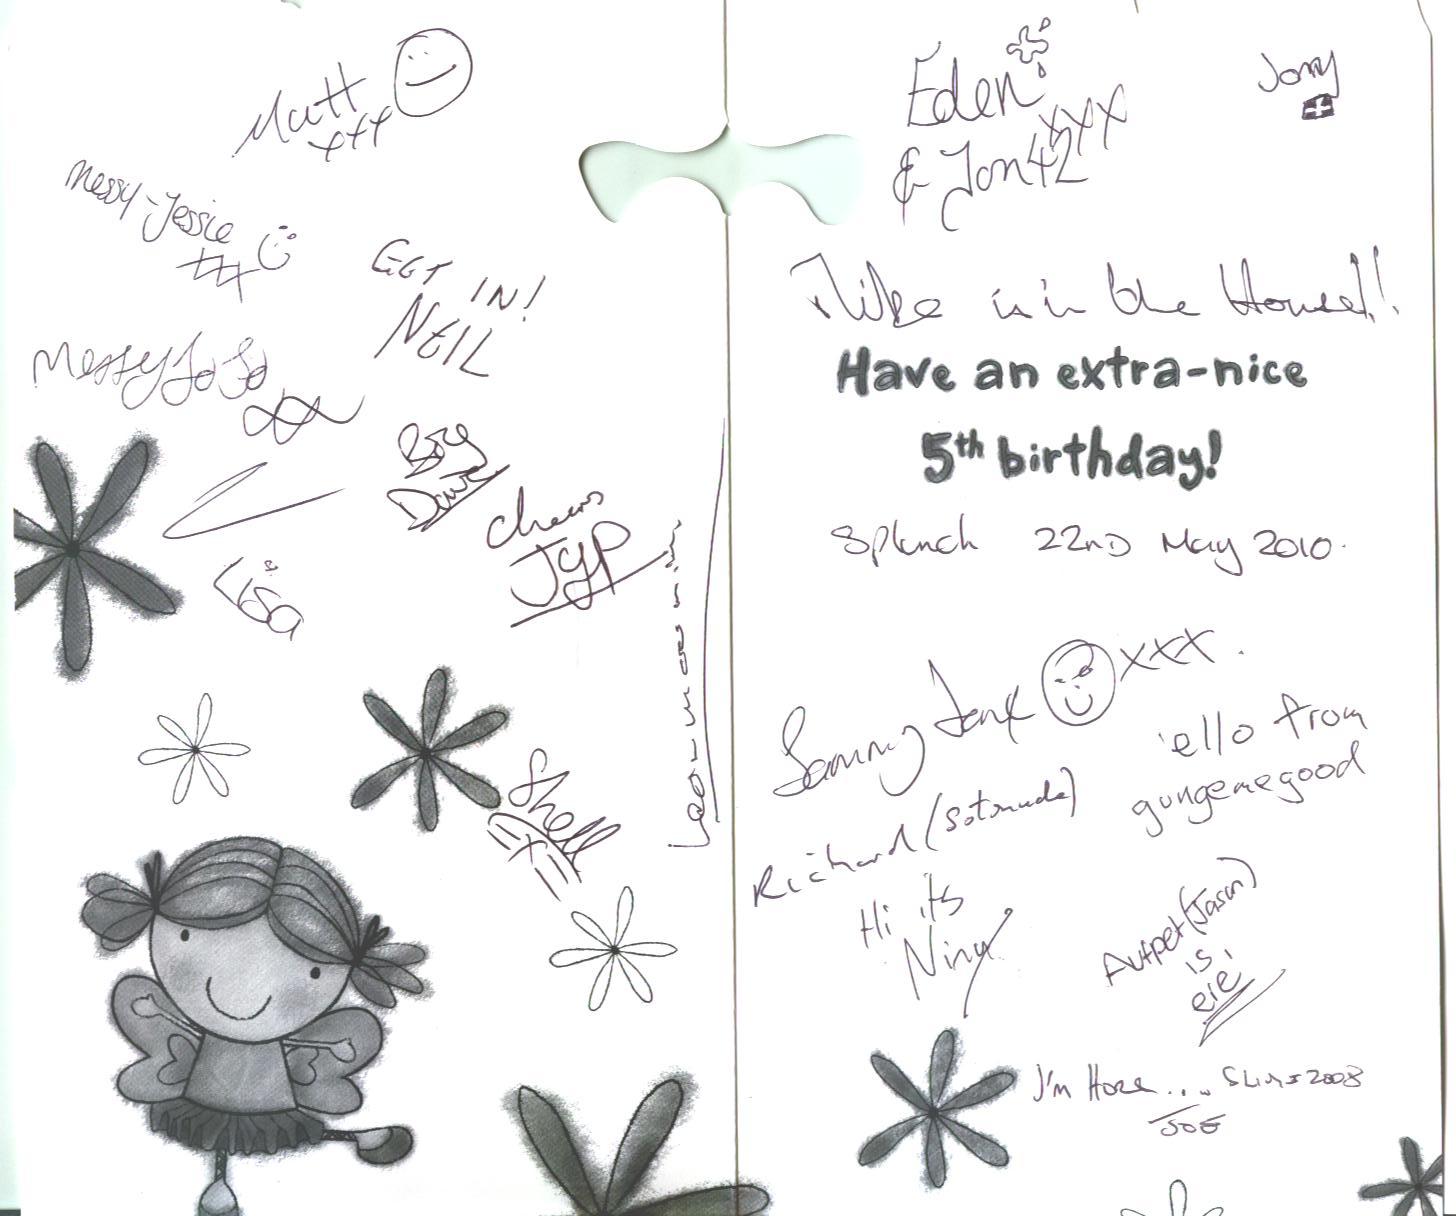 Matt
xxx
Messy-Jessie
xxx
GET IN!
NEIL
Messy JoJo
xx
Boy
Dave
Cheers
JGP
Lisa
Shell
Eden
& Jon42 xxx
Jonny
Mike is in the House!!
Have an extra-nice
5th birthday!
Splunch 22ND May 2010.
Sammy Jane xxx.
'ello from
gungemegood
Richard (sotonude)
Hi its
Nina
Autpet (Jason)
is
ere!
I'm Here.... Slime2008
JOE